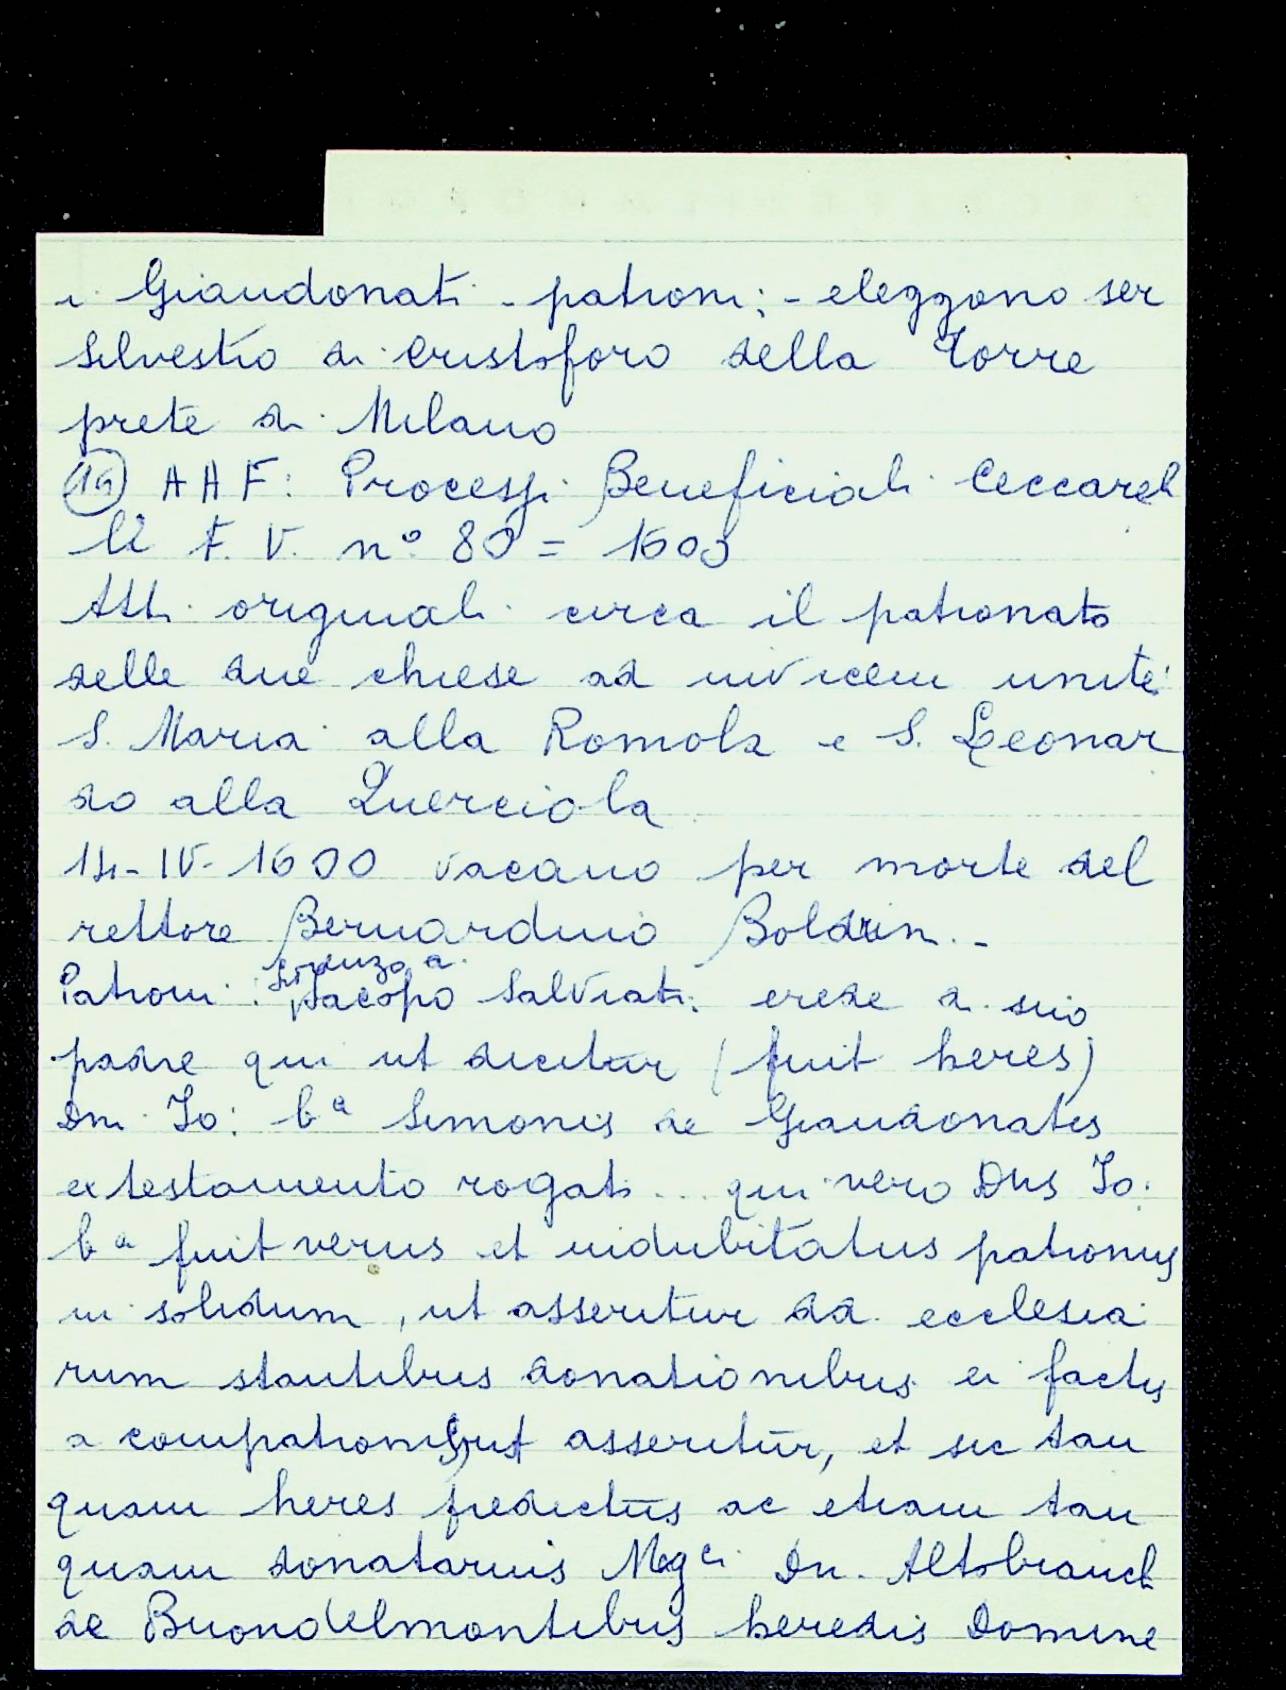 i Giandonati - patroni: - eleggono ser
Silvestro di Cristoforo della Torre
prete di Milano
(16) AAF: Processi Beneficiali Ceccarel
li F. V. n° 80 = 1600
Atti originali circa il patronato
delle due chiese ad invicem unite:
S. Maria alla Romola e S. Leonar
do alla Querciola
14-IV-1600 vacano per morte del
rettore Bernardino Boldrin. -
Lorenzo di
Patroni: Jacopo Salviati: erede di suo
padre qui ut dicitur (fuit heres)
Dni Jo: ba Simonis de Giandonatis
ex testamento rogati... qui vero Dns Jo:
ba fuit verus et indubitatus patronus
in solidum, ut asseritur dd. ecclesia
rum stantibus donationibus ei factis
a compatronis, ut asseritur, et sic tan
quam heres predictus ac etiam tan
quam donatarius Mgci Dn. Altobianch
de Buondelmontibus heredis Domine